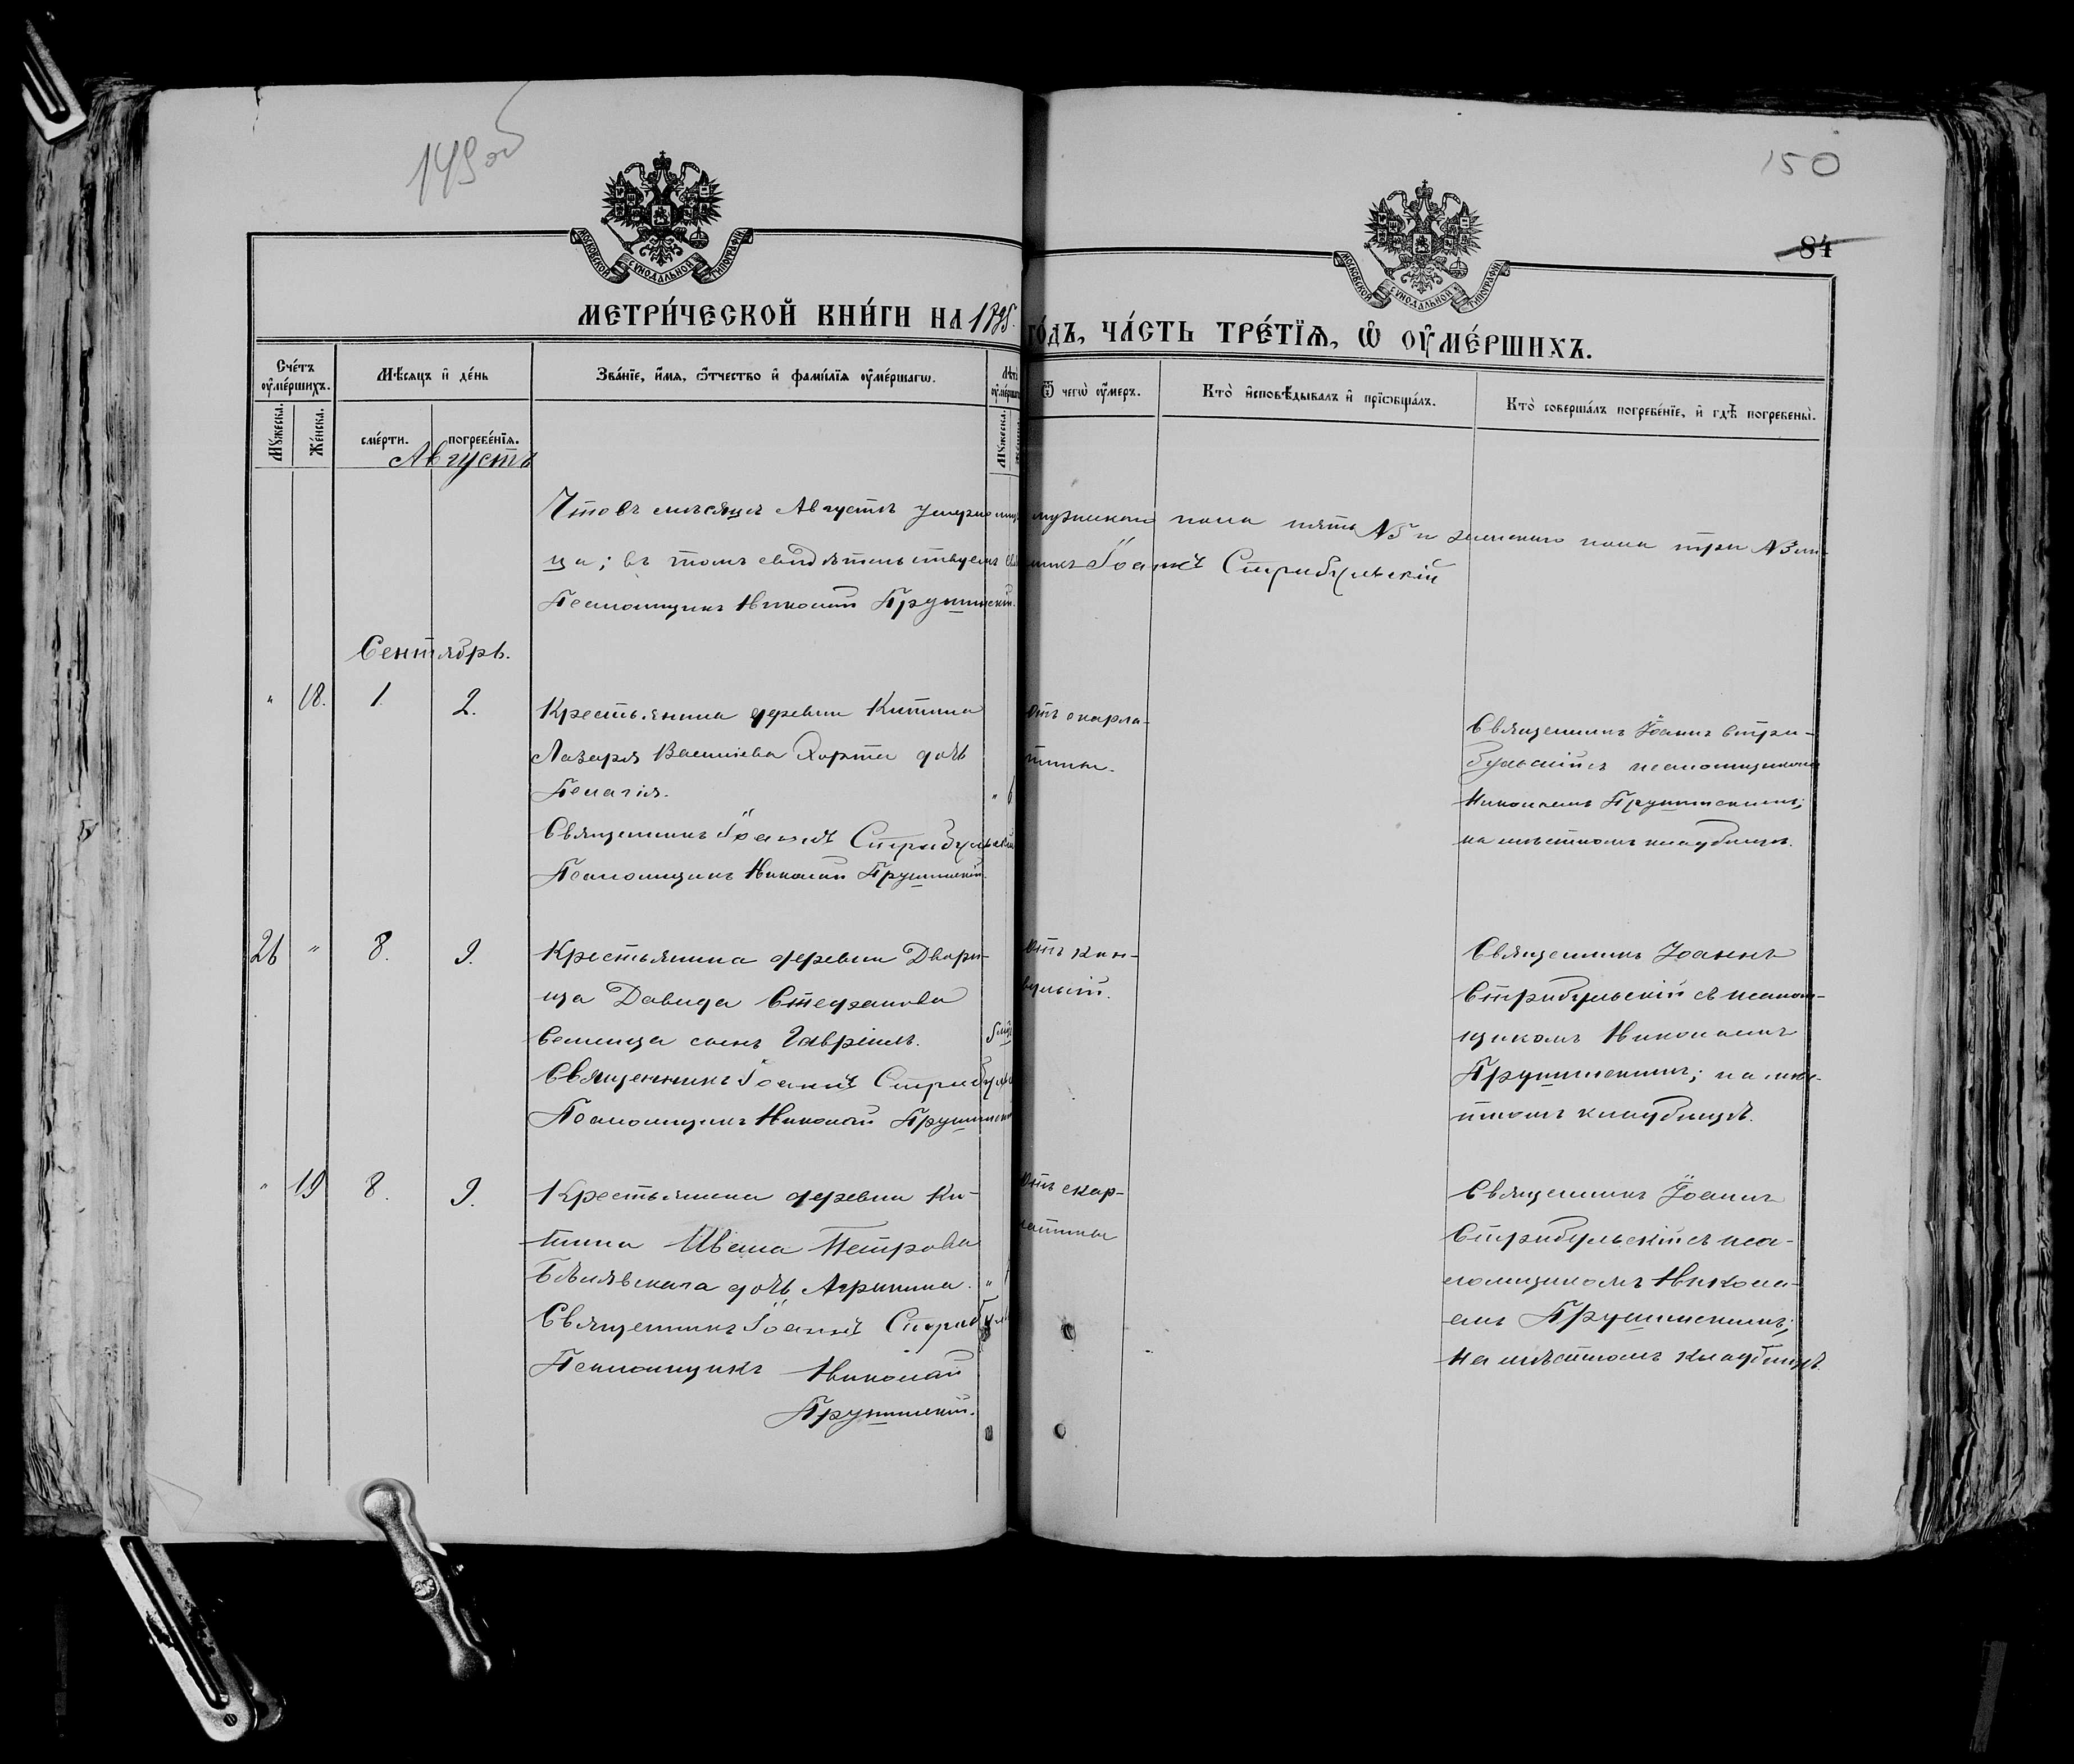 149об
150
84
МОСКОВСКОЙ СѴНОДАЛЬНОЙ ТИПОГРАФІИ
МОСКОВСКОЙ СѴНОДАЛЬНОЙ ТИПОГРАФІИ
МЕТРИ́ЧЕСКОЙ КНИ́ГИ НА 1895.
ГО́ДЪ, ЧА́СТЬ ТРЕ́ТЇѦ, Ѡ ОУ҆МЕ́РШИХЪ.
Сче́тъ оу҆ме́ршихъ.
Мѣ́сяцъ и҆ де́нь
Зва́нїе, и҆́мя, ѻ҆́тчество и҆ фами́лїя оу҆ме́ршагѡ.
Лѣ́та оу҆ме́ршагѡ
Ѿ чегѡ̀ оу҆́меръ.
Кто̀ и҆сповѣ́дывалъ и҆ прїѡбща́лъ.
Кто̀ соверша́лъ погребе́нїе, и҆ гдѣ̀ погребены̀.
Мꙋ́жеска.
Же́нска.
сме́рти.
погребе́нїя.
Мꙋ́жеска.
Августъ
Что въ мѣсяцѣ Августѣ умерло лицъ мужескаго пола пять №5 и женскаго пола три №3 ли-
ца; въ томъ свидѣтельствуемъ Священникъ Іоаннъ Стрибульскій
Псаломщикъ Николай Прушинскій.
Сентябрь.
" 18. 1. 2.
Крестьянина деревни Китина
Лазаря Васильева Хорта дочь
Пелагія.
Священникъ Іоаннъ Стрибульскій
Псаломщикъ Николай Прушинскій.
"
отъ скарла-
тины.
Священникъ Іоаннъ Стри-
бульскій съ псаломщикомъ
Николаемъ Прушинскимъ;
на мѣстномъ кладбищѣ.
26 " 8. 9.
Крестьянина деревни Двори-
ща Давида Стефанова
сынъ Гавріилъ.
Священникъ Іоаннъ Стрибульскій
Псаломщикъ Николай Прушинскій
Отъ кон-
вульсій.
Священникъ Іоаннъ
Стрибульскій съ псалом-
щикомъ Николаемъ
Прушинскимъ; на мѣс-
тномъ кладбищѣ.
" 19 8. 9.
Крестьянина деревни Ки-
тина Ивана Петрова
Бѣлявскаго дочь Агрипина.
Священникъ Іоаннъ Стрибуль
Псаломщикъ Николай
Прушинскій.
"
Отъ скар-
латины
Священникъ Іоаннъ
Стрибульскій съ пса-
ломщикомъ Никола-
емъ Прушинскимъ;
на мѣстномъ кладбищѣ.